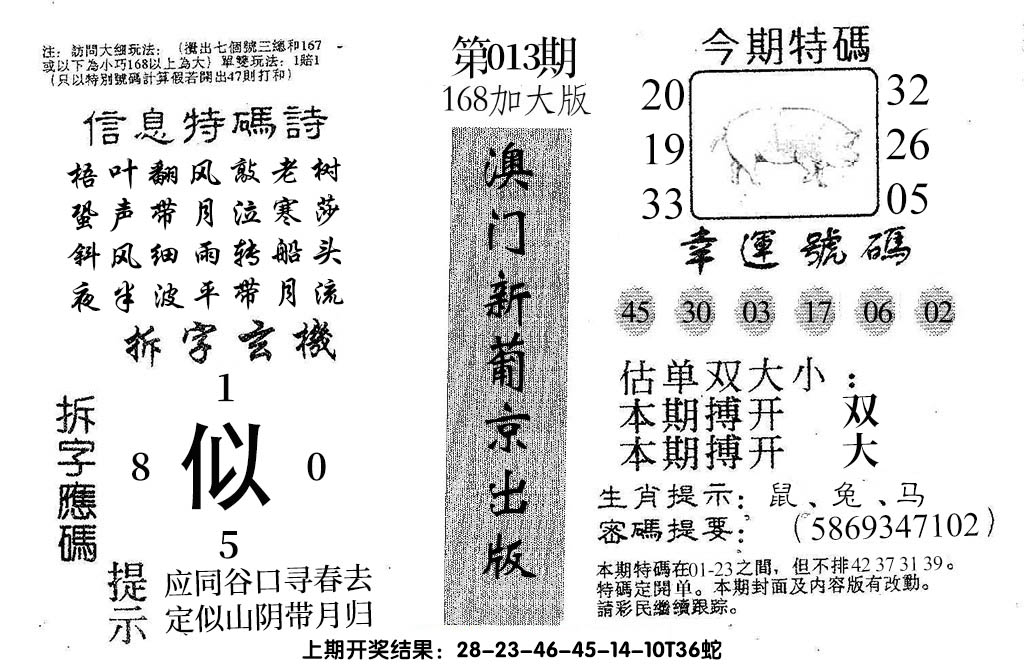 注：訪問大细玩法：（攪出七個號三總和167
或以下為小巧168以上為大）單雙玩法：1賠1
（只以特別號碼計算假若開出47則打和）
信息特碼詩
梧叶翻风敲老树
蛩声带月泣寒莎
斜风细雨转船头
夜半波平带月流
拆字玄機
拆字應碼
1
8 似 0
5
提示
应同谷口寻春去
定似山阴带月归
第013期
168加大版
澳门新葡京出版
今期特碼
20 32
19 26
33 05
幸運號碼
45 30 03 17 06 02
估单双大小：
本期搏开 双
本期搏开 大
生肖提示：鼠、兔、马
密碼提要：（5869347102）
本期特碼在01-23之間，但不排42 37 31 39。
特碼定開单。本期封面及内容版有改動。
請彩民繼續跟踪。
上期开奖结果：28-23-46-45-14-10T36蛇